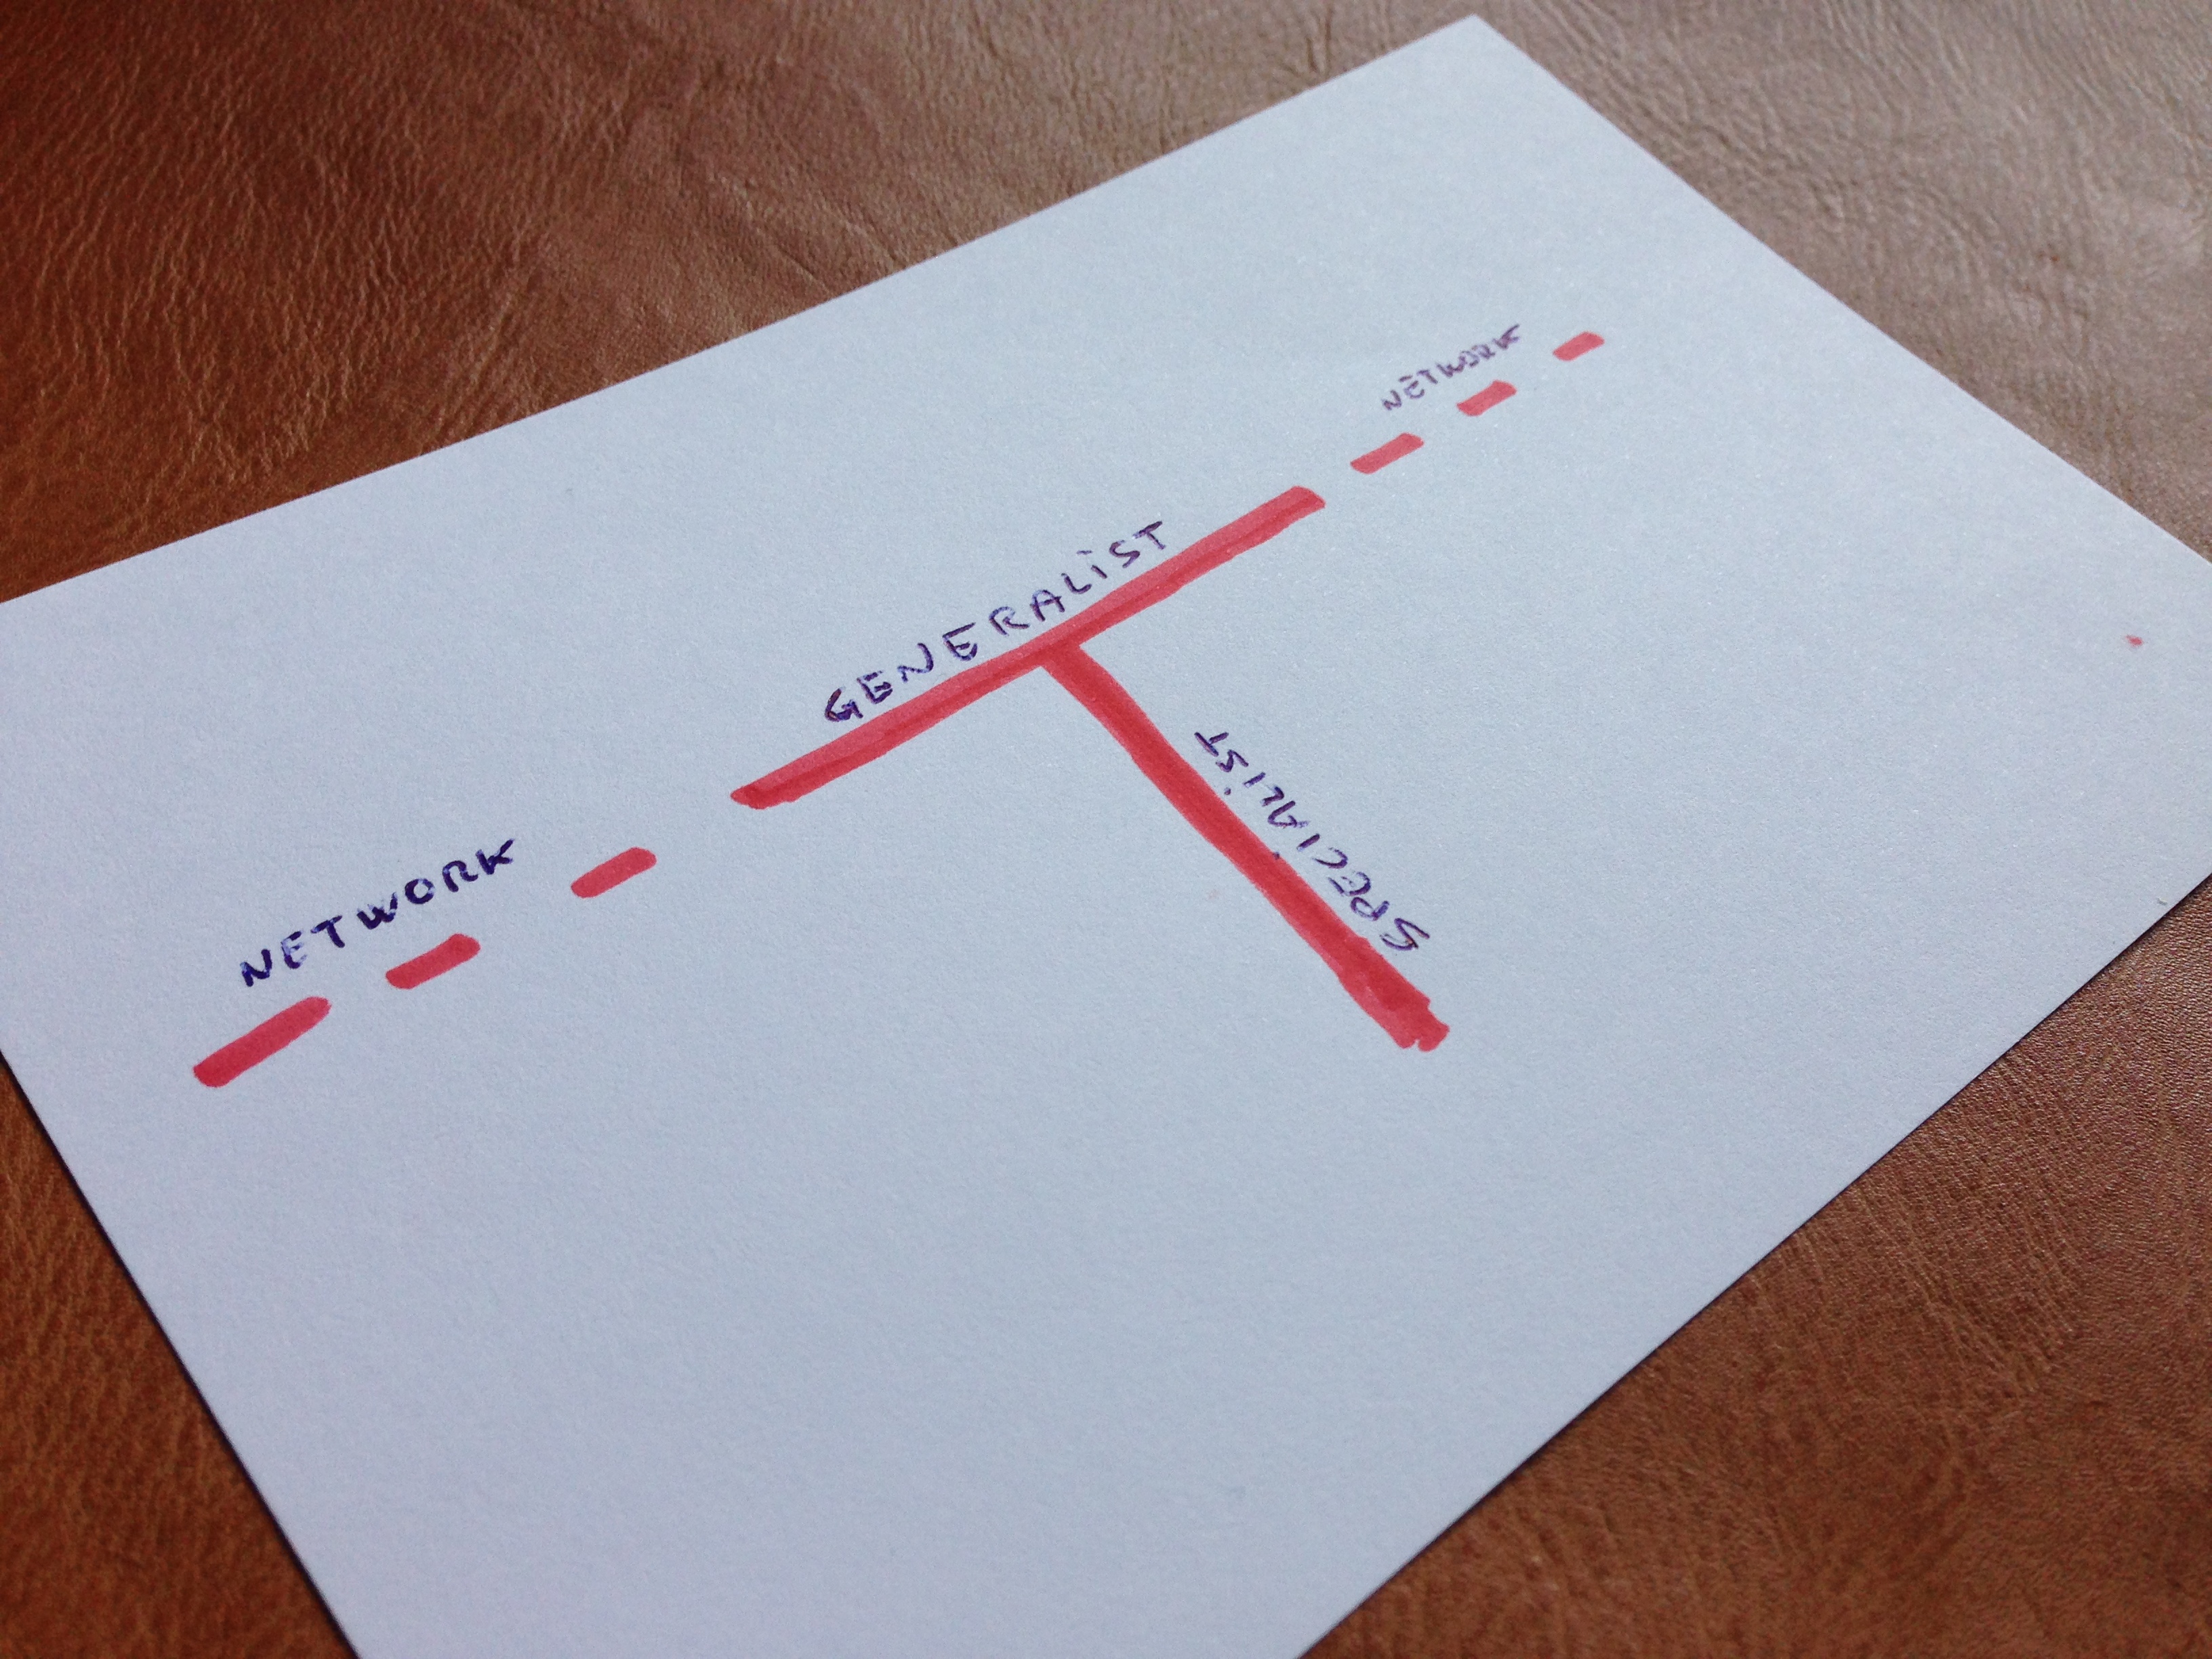 NETWORK
GENERALIST
NETWORK
SPECIALIST